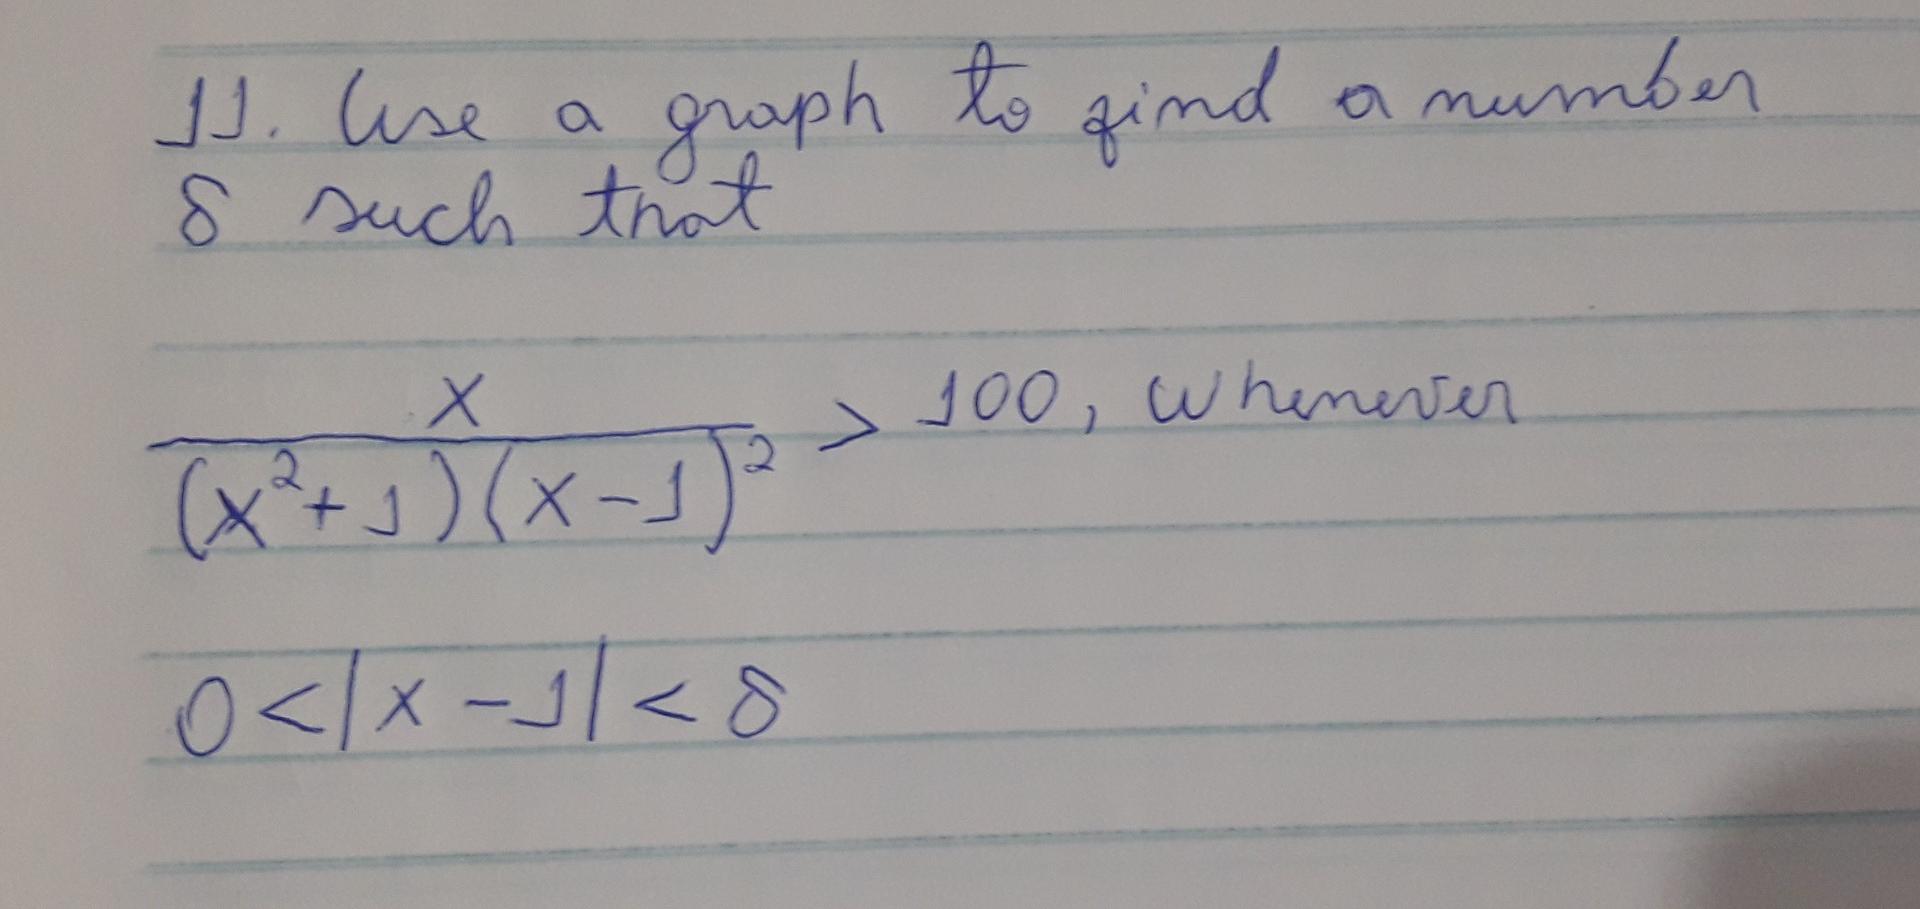 11. Use a graph to find a number
δ such that
x
/(x²+1)(x-1)² > 100, whenever
0<|x-1|<δ